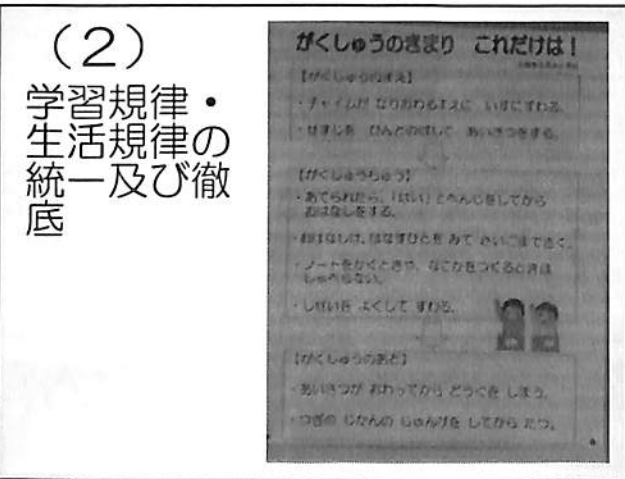 (2)
学習規律・
生活規律の
統一及び徹
底
がくしゅうのきまり これだけは!
【がくしゅうのまえ】
・チャイムが なりおわるまえに いすにすわる。
・せすじを ぴんとのばして あいさつをする。
【がくしゅうちゅう】
・あてられたら、「はい」とへんじをしてから
おはなしをする。
・おはなしは、はなすひとを みて さいごまできく。
・ノートをかくときや、なにかをつくるときは
しゃべらない。
・しせいを よくして すわる。
【がくしゅうのあと】
・あいさつが おわってから どうぐを しまう。
・つぎの じかんの じゅんびを してから たつ。